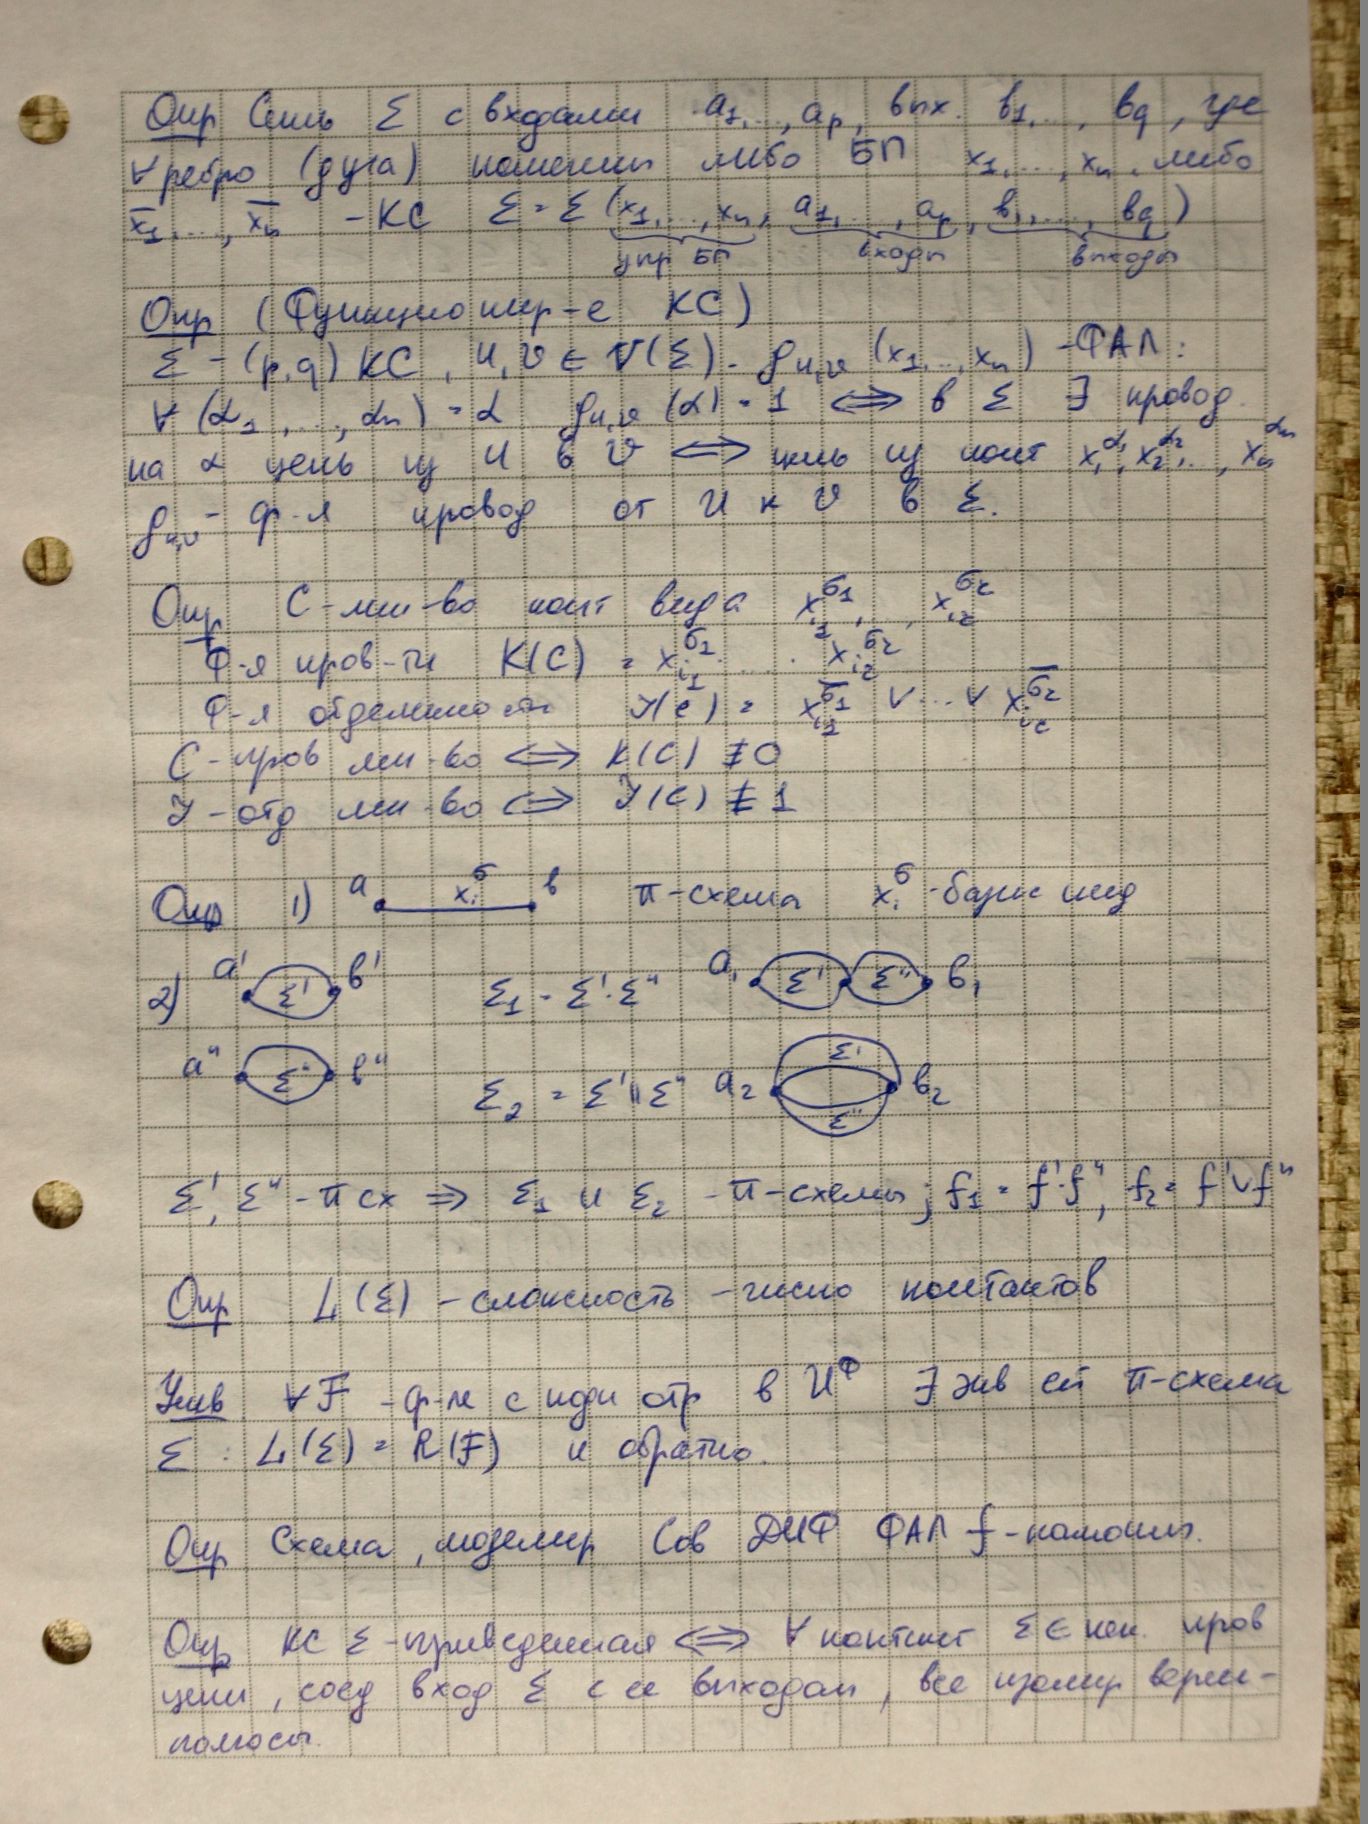 Опр Сеть Σ с входами a₁,..., aₚ, вых. b₁,..., b_q, где
∀ ребро (дуга) помечены либо БП x₁,..., xₙ, либо
x̄₁,..., x̄ₙ - КС Σ = Σ (x₁,..., xₙ, a₁,..., aₚ, b₁,..., b_q)
упр БП входы выходы
Опр (Функционир-е КС)
Σ - (p,q) КС, u,v ∈ V(Σ) - g_{u,v} (x₁,..., xₙ) - ФАЛ:
∀ (α₁,..., αₙ) = α g_{u,v} (α) = 1 ⟺ в Σ ∃ провод.
на α цепь из u в v ⟺ цепь из конт x₁^{α₁}, x₂^{α₂},.., xₙ^{αₙ}
g_{u,v} - ф-я провод от u к v в Σ.
Опр C - мн-во конт вида x_{i₁}^{σ₁},..., x_{i_r}^{σ_r}
Ф-я пров-ти K(C) = x_{i₁}^{σ₁} ..... x_{i_r}^{σ_r}
Ф-я отделимости J(C) = x_{i₁}^{σ̄₁} ∨ ... ∨ x_{i_r}^{σ̄_r}
C - пров мн-во ⟺ K(C) ≢ 0
J - отд мн-во ⟺ J(C) ≢ 1
Опр 1) a x_i^σ b π-схема x_i^σ - базис инд
2) a' Σ' b' Σ₁ = Σ'·Σ'' a₁ Σ' Σ'' b₁
a'' Σ'' b'' Σ₂ = Σ' || Σ'' a₂ Σ' Σ'' b₂
Σ', Σ'' - π сх ⇒ Σ₁ и Σ₂ - π-схемы; f₁ = f'·f'', f₂ = f' ∨ f''
Опр L(Σ) - сложность - число контактов
Утв ∀ F - ф-ле с подн отр в U^Ф ∃ экв ей π-схема
Σ : L(Σ) = R(F) и обратно.
Опр Схема, моделир Сов ДНФ ФАЛ f -
Опр КС Σ - приведенная ⟺ ∀ контакт Σ ∈ нек. пров
цепи, соед вход Σ с ее выходом, все изолир верш -
полюсы.